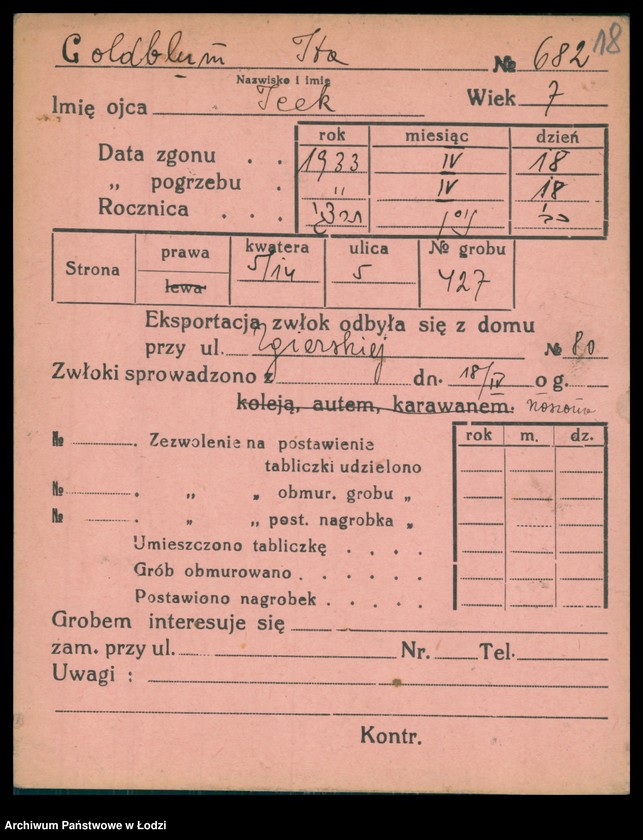 18
Goldblum Ita № 682
Nazwisko i imię
Imię ojca Icek Wiek 7
rok miesiąc dzień
Data zgonu . . 1933 IV 18
„ pogrzebu . „ IV 18
Rocznica . . .
Strona prawa kwatera ulica № grobu
lewa 5/14 5 427
Eksportacja zwłok odbyła się z domu
przy ul. Zgierskiej № 80
Zwłoki sprowadzono z dn. 18/IV o g.
koleją, autem, karawanem.
rok m. dz.
№ . Zezwolenie na postawienie
tabliczki udzielono
№ . „ „ obmur. grobu „
№ . „ „ post. nagrobka „
Umieszczono tabliczkę . . . .
Grób obmurowano . . . . . .
Postawiono nagrobek . . . . .
Grobem interesuje się
zam. przy ul. Nr. Tel.
Uwagi :
Kontr.
Archiwum Państwowe w Łodzi